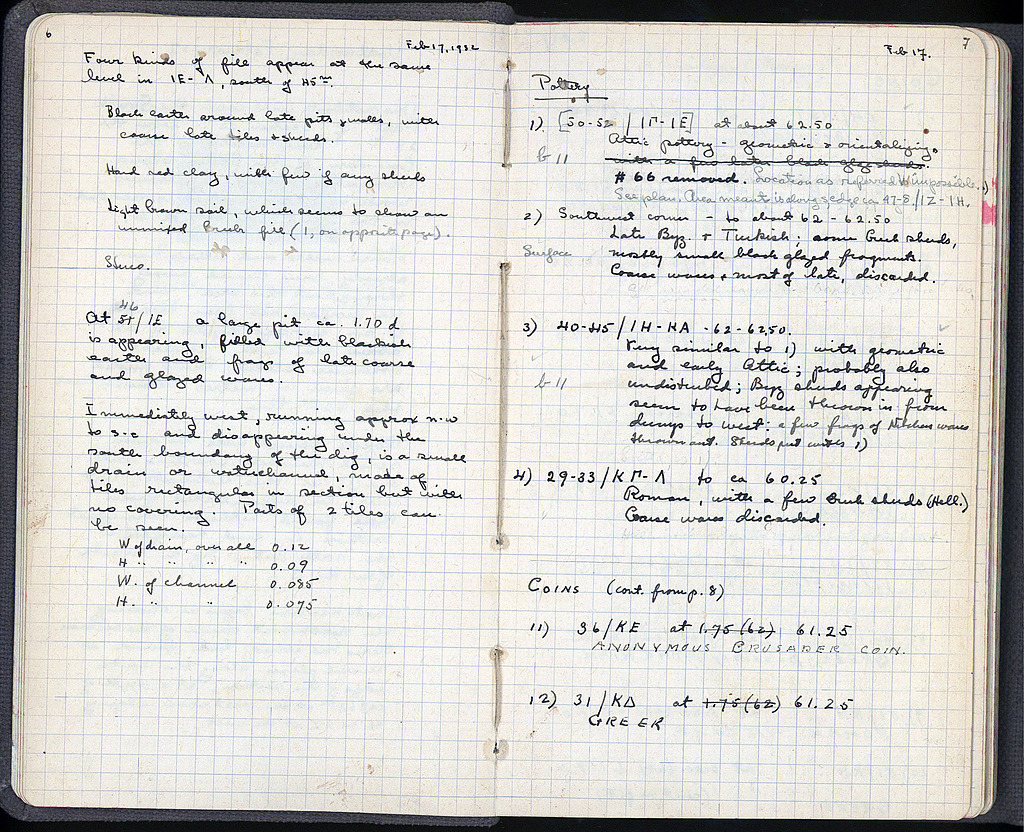 6
Feb 17, 1932
Four kinds of fill appear at the same
level in ΙΕ-Λ, south of 45
Black earth around late pits & walls, with
coarse late tiles & sherds.
Hard red clay, with few if any sherds
Light brown soil, which seems to show an
unmixed Greek fill (1, on opposite page).
46
At 51/ΙΕ a large pit ca. 1.70 d
is appearing, filled with blackish
earth and frags of late coarse
and glazed wares.
Immediately west, running approx n-w
to s-e and disappearing under the
south boundary of the dig, is a small
drain or waterchannel, made of
tiles rectangular in section but with
no covering. Parts of 2 tiles can
be seen.
W of drain, over all 0.12
H " " " " 0.09
W. of channel 0.085
H. " " 0.075
7
Feb 17.
Pottery
1) [50-52 / ΙΓ-ΙΕ] at about 62.50
Attic pottery - geometric & orientalizing.
b 11 with a few later black glaze sherds.
# 66 removed. Location as referred to impossible.
See plan. Area meant is along s edge ca 47-8/ΙΖ-ΙΗ.
2) Southwest corner - to about 62 - 62.50
Late Byz. & Turkish; some Greek sherds,
Surface mostly small black glazed fragments.
Coarse wares & most of late, discarded.
3) 40-45/ΙΗ-ΚΑ -62-62.50.
Very similar to 1) with geometric
and early Attic; probably also
b 11 undisturbed; Byz sherds appearing
seem to have been thrown in from
dumps to west: a few frags of kitchen wares
thrown out. Sherds put with 1)
4) 29-33/ΚΓ-Λ to ca 60.25
Roman, with a few Greek sherds (Hell.)
Coarse wares discarded.
COINS (cont. from p. 8)
11) 36/ΚΕ at 1.75 (62) 61.25
ANONYMOUS CRUSADER COIN.
12) 31/ΚΔ at 1.75 (62) 61.25
GREEK